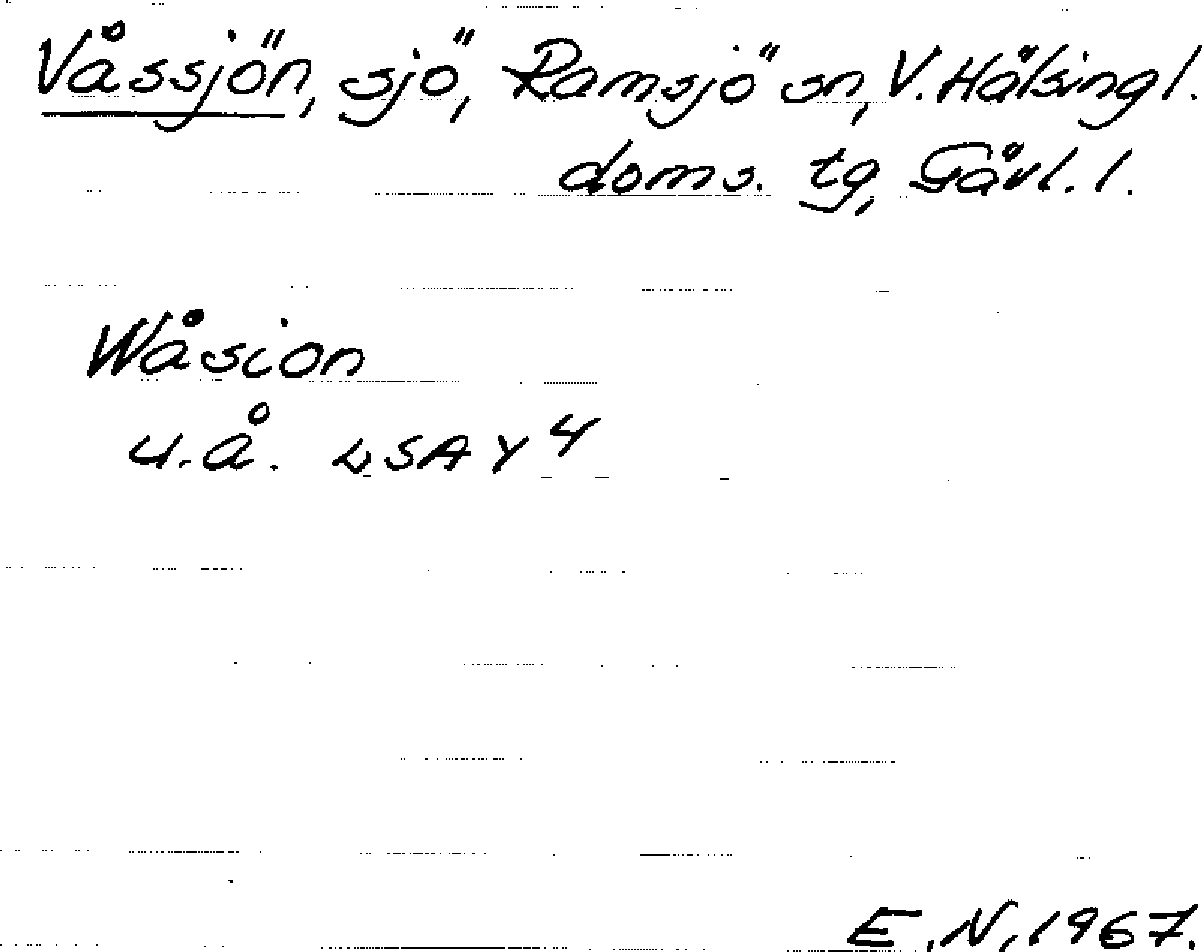 Våssjön, sjö, Ramsjö sn, V. Hälsingl.
doms. tg, Gävl. l.
Wåsion
u.å. LSA Y 4
E.N. 1967.